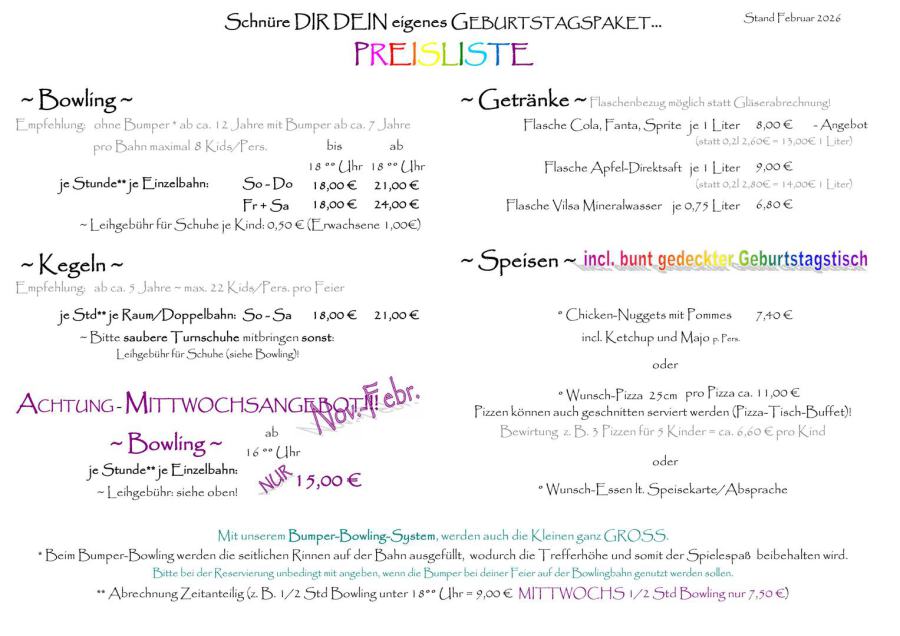 Schnüre DIR DEIN eigenes GEBURTSTAGSPAKET...
Stand Februar 2026
PREISLISTE
~ Bowling ~
Empfehlung: ohne Bumper * ab ca. 12 Jahre mit Bumper ab ca. 7 Jahre
pro Bahn maximal 8 Kids/Pers. bis ab
18 °° Uhr 18 °° Uhr
je Stunde** je Einzelbahn: So - Do 18,00 € 21,00 €
Fr + Sa 18,00 € 24,00 €
~ Leihgebühr für Schuhe je Kind: 0,50 € (Erwachsene 1,00€)
~ Kegeln ~
Empfehlung: ab ca. 5 Jahre ~ max. 22 Kids/Pers. pro Feier
je Std** je Raum/Doppelbahn: So - Sa 18,00 € 21,00 €
~ Bitte saubere Turnschuhe mitbringen sonst:
Leihgebühr für Schuhe (siehe Bowling)!
ACHTUNG - MITTWOCHSANGEBOT!!!
Nov.-Febr.
~ Bowling ~ ab
16 °° Uhr
je Stunde** je Einzelbahn:
NUR 15,00 €
~ Leihgebühr: siehe oben!
~ Getränke ~ Flaschenbezug möglich statt Gläserabrechnung!
Flasche Cola, Fanta, Sprite je 1 Liter 8,00 € - Angebot
(statt 0,2l 2,60€ = 13,00€ 1 Liter)
Flasche Apfel-Direktsaft je 1 Liter 9,00 €
(statt 0,2l 2,80€ = 14,00€ 1 Liter)
Flasche Vilsa Mineralwasser je 0,75 Liter 6,80 €
~ Speisen ~ incl. bunt gedeckter Geburtstagstisch
° Chicken-Nuggets mit Pommes 7,40 €
incl. Ketchup und Majo p. Pers.
oder
° Wunsch-Pizza 25cm pro Pizza ca. 11,00 €
Pizzen können auch geschnitten serviert werden (Pizza-Tisch-Buffet)!
Bewirtung z. B. 3 Pizzen für 5 Kinder = ca. 6,60 € pro Kind
oder
° Wunsch-Essen lt. Speisekarte/Absprache
Mit unserem Bumper-Bowling-System, werden auch die Kleinen ganz GROSS.
* Beim Bumper-Bowling werden die seitlichen Rinnen auf der Bahn ausgefüllt, wodurch die Trefferhöhe und somit der Spielespaß beibehalten wird.
Bitte bei der Reservierung unbedingt mit angeben, wenn die Bumper bei deiner Feier auf der Bowlingbahn genutzt werden sollen.
** Abrechnung Zeitanteilig (z. B. 1/2 Std Bowling unter 18°° Uhr = 9,00 € MITTWOCHS 1/2 Std Bowling nur 7,50 €)